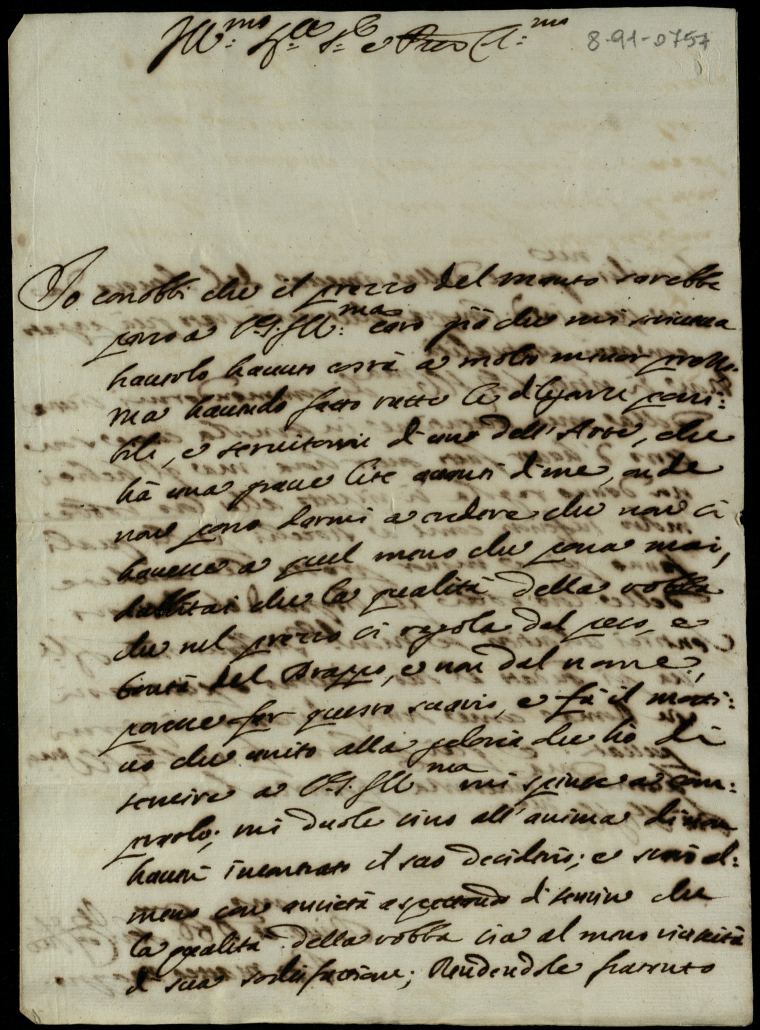 Ill:mo Sig:re S:r e Pron C:mo
8-91-0757
Io conobbi che il prezzo del manto sarebbe
parso a V.S. Ill:ma caro più che mi scriveva
haverlo havuto costà a molto minor prezzo.
Ma havendo fatto tutte le diligenze possi:
bili, e servitomi di uno dell'Arte, che
hà una grave lite avanti di me, onde
non posso darmi a credere che non ci
havesse a quel meno che possa mai,
dubitai che la qualità della robba
che nel prezzo si regola dal peso, e
bontà del Drappo, e non dal nome,
potesse far questo svario, e fù il moti:
vo che unito alla gloria che hò di
servire a V.S. Ill:ma mi spinse a com:
prarlo; mi duole sino all'anima di non
haver incontrato il suo desiderio; e starò al:
meno con ansietà aspettando di sentire che
la qualità della robba sia al meno riuscita
di sua sodisfazione; Rendendole frattanto